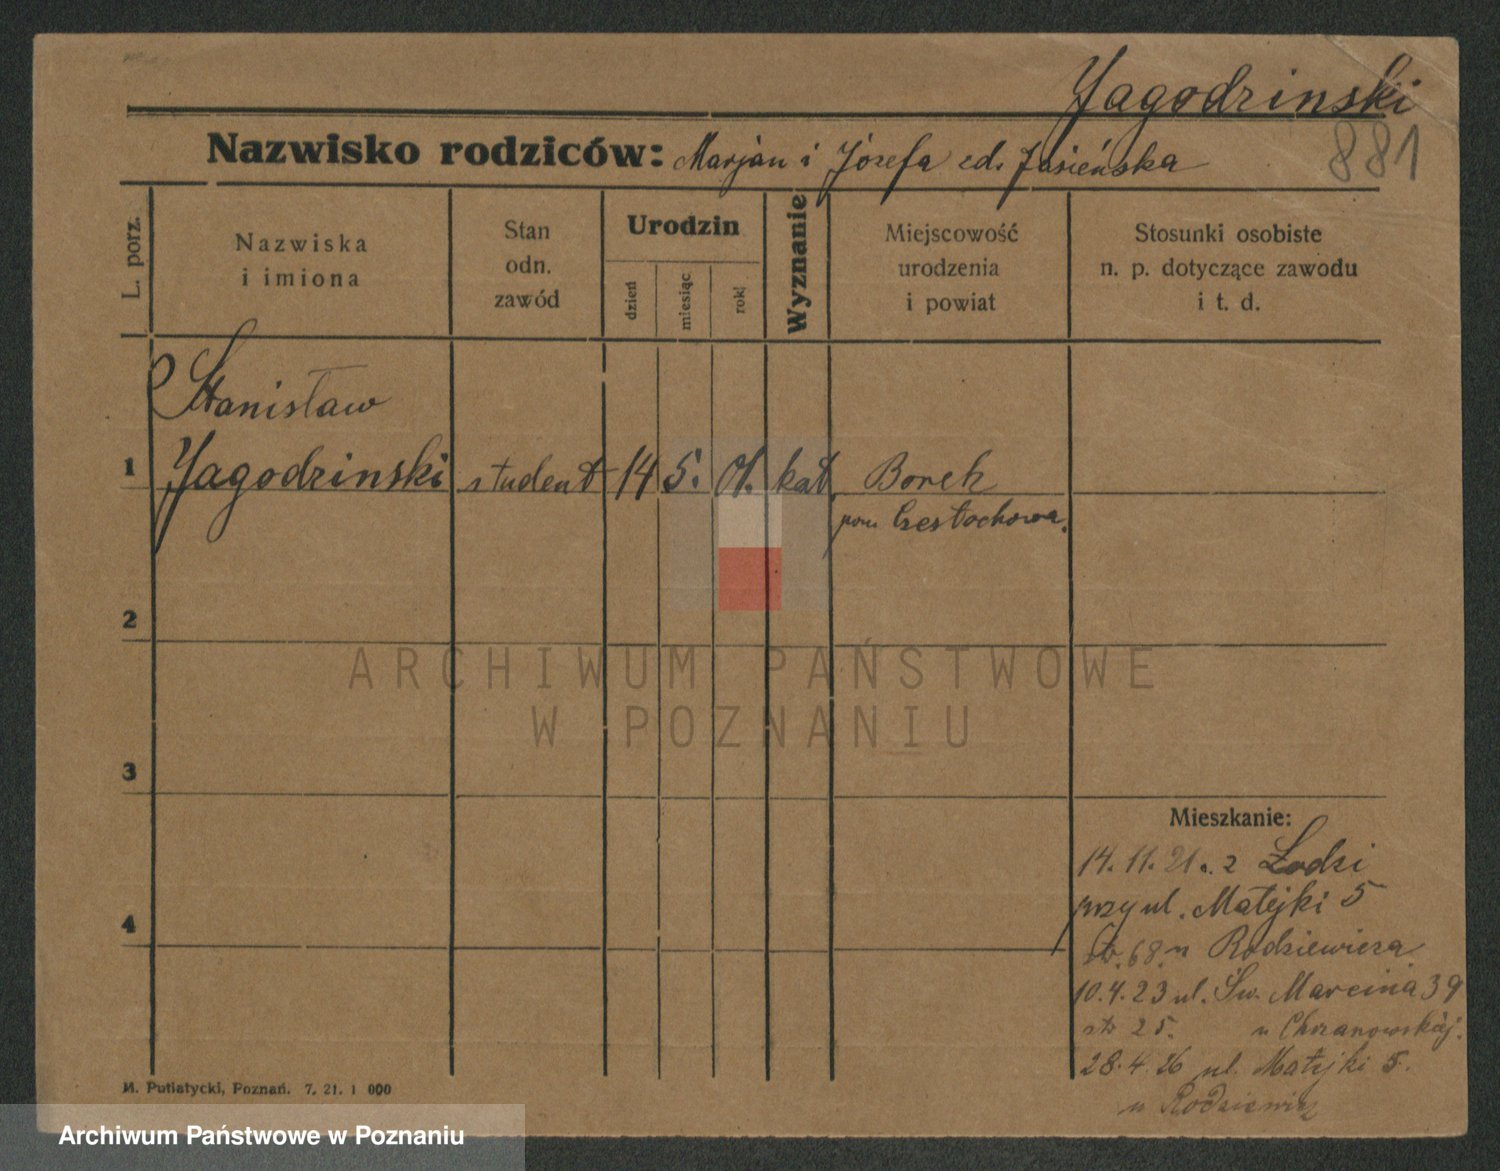 Jagodzinski
Nazwisko rodziców: Marjan i Józefa zd. Jasieńska
881
L. porz.
Nazwiska
i imiona
Stan
odn.
zawód
Urodzin
dzień
miesiąc
rok
Wyznanie
Miejscowość
urodzenia
i powiat
Stosunki osobiste
n. p. dotyczące zawodu
i t. d.
Stanisław
1 Jagodzinski student 14 5. 01. kat. Borek
pow Częstochowa.
2
ARCHIWUM PAŃSTWOWE
W POZNANIU
3
Mieszkanie:
14. 11. 21. z Łodzi
przy ul. Matejki 5
4
str. 68. u Rodziewicza
10.4.23 ul. Św. Marcina 39
str 25. u Chrzanowskiej.
28.4.26 ul. Matejki 5.
u Rodziewicz
M. Putiatycki, Poznań. 7. 21. 1 000
Archiwum Państwowe w Poznaniu